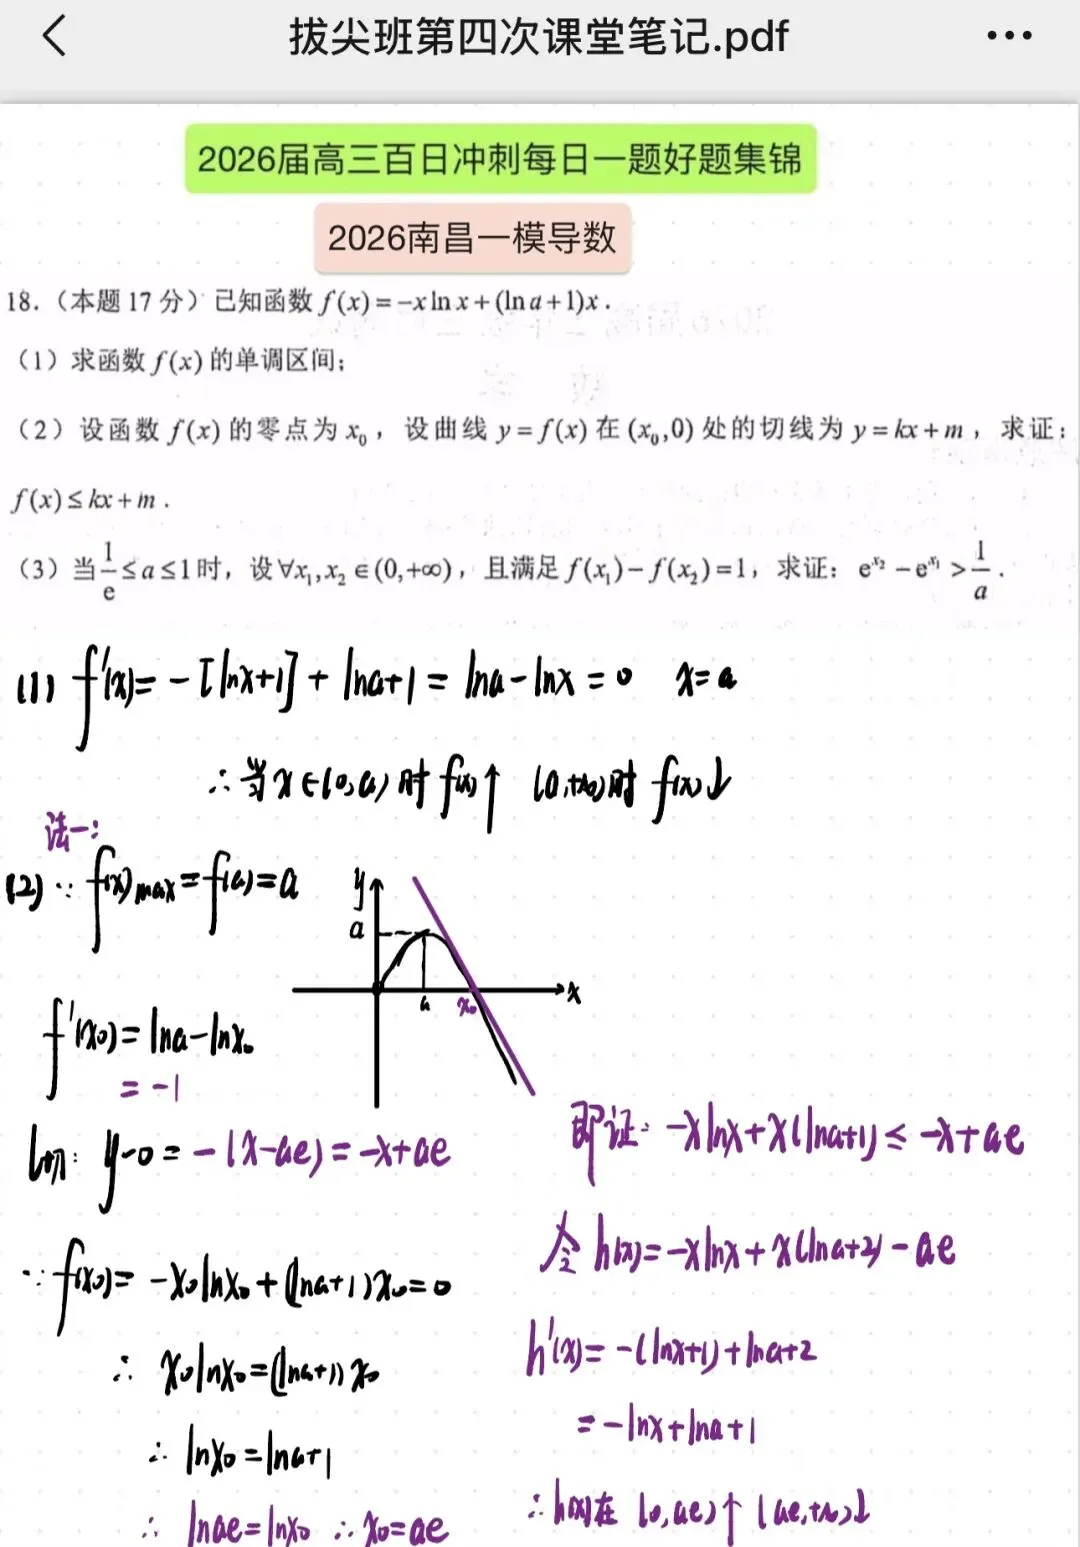 拔尖班第四次课堂笔记.pdf
2026届高三百日冲刺每日一题好题集锦
2026南昌一模导数
18.（本题 17 分）已知函数 f(x)=-x ln x+(ln a+1)x .
（1）求函数 f(x) 的单调区间;
（2）设函数 f(x) 的零点为 x₀ ，设曲线 y=f(x) 在 (x₀,0) 处的切线为 y=kx+m ，求证:
f(x)≤kx+m .
（3）当 1/e ≤a≤1时，设 ∀x₁,x₂∈(0,+∞)，且满足 f(x₁)-f(x₂)=1，求证: e^{x₂}-e^{x₁}>1/a .
(1) f'(x)=-[lnx+1]+lna+1=lna-lnx=0 x=a
∴当x∈(0,a)时 f(x)↑ (a,+∞)时 f(x)↓
法一:
(2) ∵ f(x)max=f(a)=a
y
a
a
x₀
x
f'(x₀)=lna-lnx₀
=-1
l切: y-0=-(x-ae)=-x+ae
∵ f(x₀)=-x₀lnx₀+(lna+1)x₀=0
∴ x₀lnx₀=(lna+1)x₀
∴ lnx₀=lna+1
∴ lnae=lnx₀ ∴x₀=ae
即证: -xlnx+x(lna+1)≤-x+ae
令h(x)=-xlnx+x(lna+2)-ae
h'(x)=-(lnx+1)+lna+2
=-lnx+lna+1
∴h(x)在 (0,ae)↑ (ae,+∞)↓